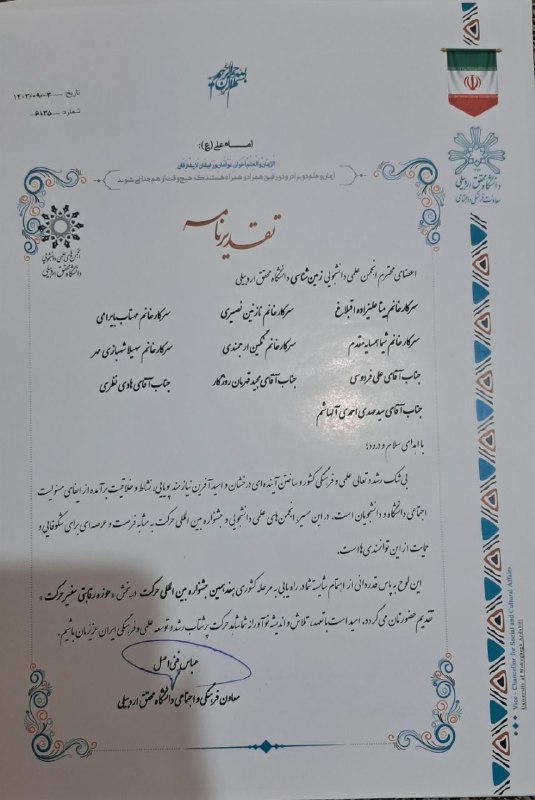 تاریخ: ۱۴۰۲/۰۹/۰۳
شماره: ۶۱۳۵
امام علی (ع):
ایمان و علم دو برادر و دو رفیق همزاد و همراه هستند که هیچ وقت از هم جدا نمی شوند
تقدیرنامه
انجمن های علمی دانشجویی
دانشگاه محقق اردبیلی
دانشگاه محقق اردبیلی
معاونت فرهنگی و اجتماعی
اعضای محترم انجمن علمی دانشجویی زمین شناسی دانشگاه محقق اردبیلی
سرکار خانم مینا علیزاده اقبلاغ سرکار خانم نازنین نصیری سرکار خانم مهتاب بایرامی
سرکار خانم شیما همسایه مقدم سرکار خانم نگین ارجمندی سرکار خانم سهیلا شهبازی مهر
جناب آقای علی فردوسی جناب آقای مجید قهرمان روزگار جناب آقای هادی نظری
جناب آقای سید مهدی احمدی آلهاشم
با اهدای سلام و درود؛
بی شک رشد و تعالی علمی و فرهنگی کشور و ساختن آینده ای درخشان و امیدآفرین نیازمند پویایی، نشاط و خلاقیت برآمده از ایفای مسئولیت
اجتماعی دانشگاه و دانشجویان است. در این مسیر انجمن های علمی دانشجویی و جشنواره بین المللی حرکت به مثابه فرصت و عرصه ای برای شکوفایی و
حمایت از این توانمندی هاست.
این لوح به پاس قدردانی از اهتمام شایسته شما در راه یابی به مرحله کشوری هفدهمین جشنواره بین المللی حرکت در بخش «حوزه رقابتی سفیر حرکت»
تقدیم حضورتان می گردد. امید است با تعهد، تلاش و اندیشه نوآورانه شما شاهد حرکت پرشتاب رشد و توسعه علمی و فرهنگی ایران عزیزمان باشیم.
عباس فنی اصل
معاون فرهنگی و اجتماعی دانشگاه محقق اردبیلی
Vice - Chancellor for Social and Cultural Affairs
University of Mohaghegh Ardabili